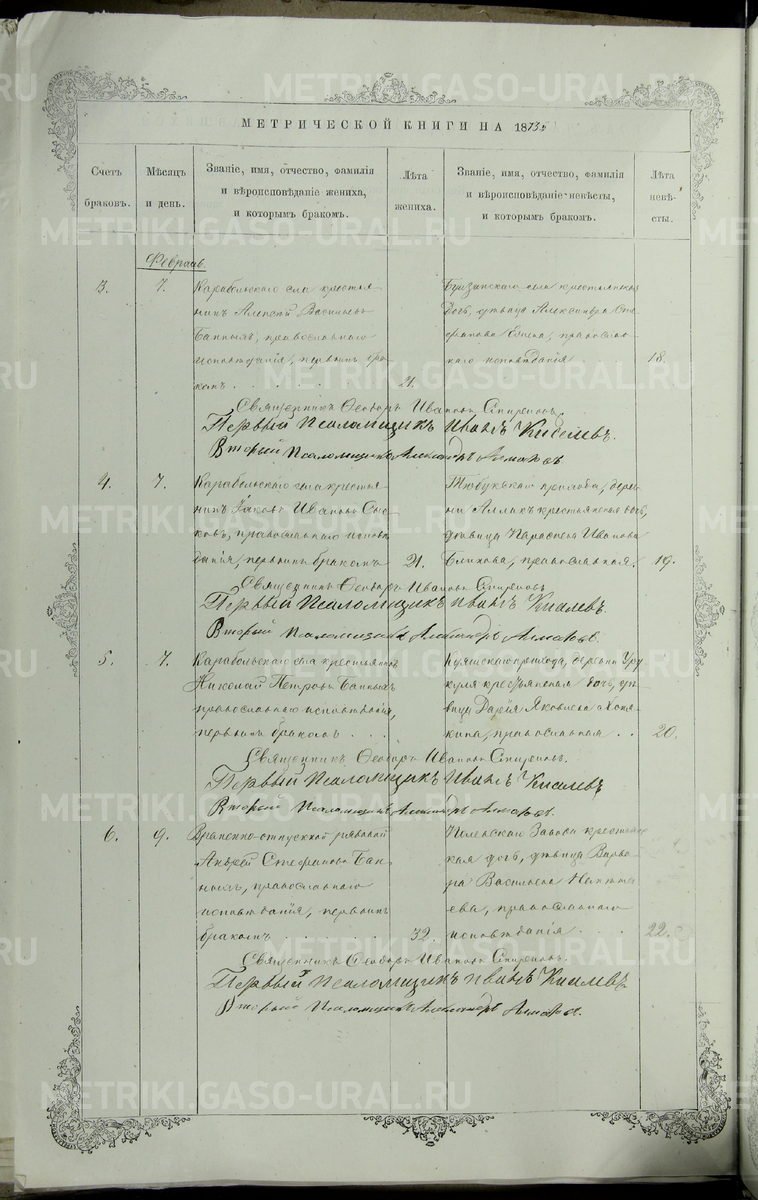 МЕТРИЧЕСКОЙ КНИГИ НА 1873
Счетъ браковъ.
Мѣсяцъ и день.
Званіе, имя, отчество, фамилія
и вѣроисповѣданіе жениха,
и которымъ бракомъ.
Лѣта жениха.
Званіе, имя, отчество, фамилія
и вѣроисповѣданіе невѣсты,
и которымъ бракомъ.
Лѣта невѣ-
сты.
Февраль.
3. 7.
Карабольскаго села крестья-
нинъ Алексѣй Васильевъ
Банныхъ, православнаго
исповѣданія, первымъ бра-
комъ 21.
села крестьянская
дочь, дѣвица Александра Сте-
фанова православ-
наго исповѣданія 18.
Священникъ Ѳеодоръ Ивановъ Спиринъ.
Первый Псаломщикъ Иванъ
Второй Псаломщикъ Александръ
4. 7.
Карабольскаго села крестья-
нинъ Іаковъ Ивановъ
православнаго исповѣ-
данія, первымъ бракомъ 21.
Тюбукскаго прихода, дерев-
ни Аллакъ крестьянская дочь,
дѣвица Параскева Иванова
православная. 19.
Священникъ Ѳеодоръ Ивановъ Спиринъ.
Первый Псаломщикъ Иванъ Киселевъ.
Второй Псаломщикъ Александръ
5. 7.
Карабольскаго села крестьянинъ
Николай Петровъ Банныхъ
православнаго исповѣданія,
первымъ бракомъ
Куяшскаго прихода, деревни Уру-
куля крестьянская дочь, дѣ-
вица Дарія Яковлева
православная 20.
Священникъ Ѳеодоръ Ивановъ Спиринъ.
Первый Псаломщикъ Иванъ Киселевъ
Второй Псаломщикъ Александръ
6. 9.
Временно-отпускной рядовой
Андрей Стефановъ Бан-
ныхъ, православнаго
исповѣданія, первымъ
бракомъ 32.
Завода крестьянс-
кая дочь, дѣвица Варва-
ра Васильева
православнаго
исповѣданія 22.
Священникъ Ѳеодоръ Ивановъ Спиринъ.
Первый Псаломщикъ Иванъ Киселевъ
Второй Псаломщикъ Александръ
METRIKI.GASO-URAL.RU